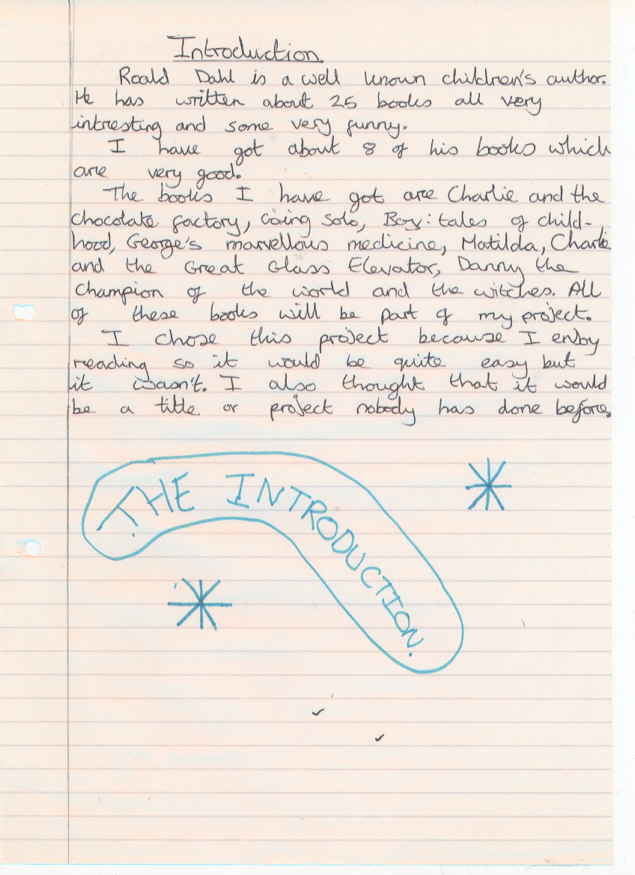 Introduction
Roald Dahl is a well known children's author.
He has written about 25 books all very
intresting and some very funny.
I have got about 8 of his books which
are very good.
The books I have got are Charlie and the
chocolate factory, Going Solo, Boy: tales of child-
hood, George's marvellous medicine, Matilda, Charlie
and the Great Glass Elevator, Danny the
Champion of the world and the witches. All
of these books will be part of my project.
I chose this project because I enjoy
reading so it would be quite easy but
it wasn't. I also thought that it would
be a title or project nobody has done before.
THE INTRODUCTION.